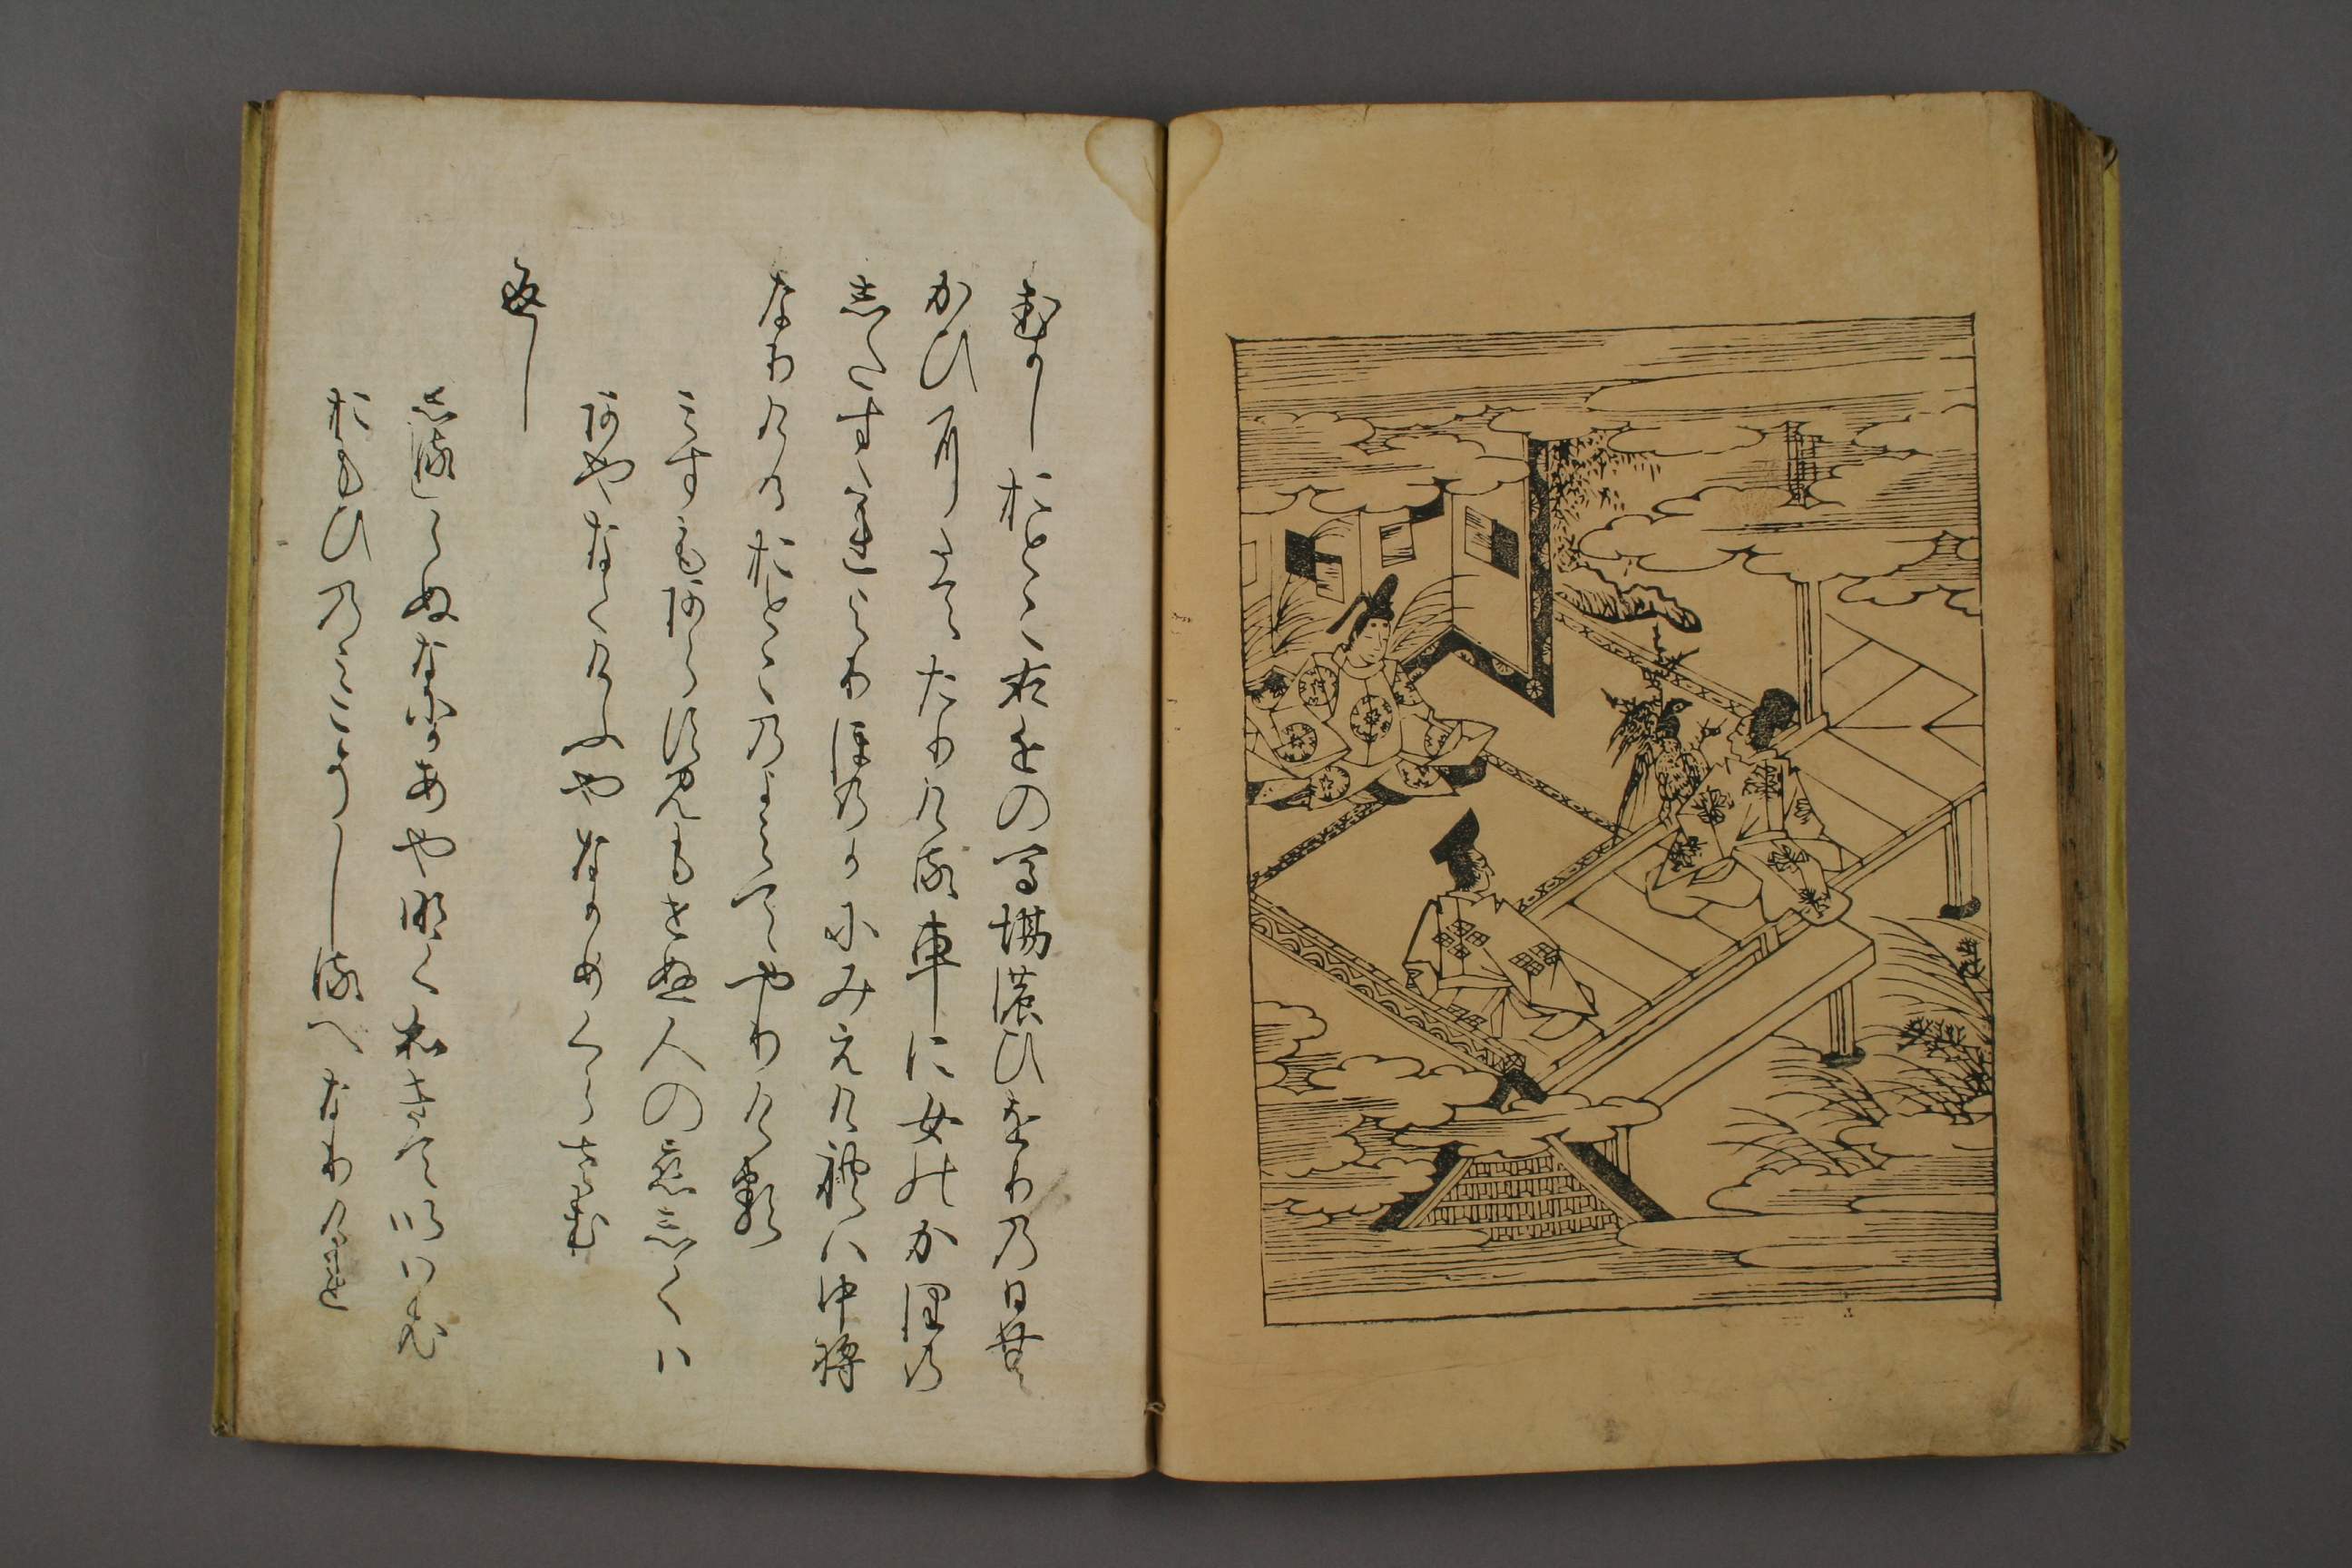 むかしおとこ右近の馬場のひをりの日む
かひにたてたりける車に女のかほの
したすたれよりほのかにみえけれは中将
なりけるおとこのよみてやりける
みすもあらすみもせぬ人の恋しくは
あやなくけふやなかめくらさむ
返し
しるしらぬなにかあやなくわきていはむ
おもひのみこそしるへなりけれ